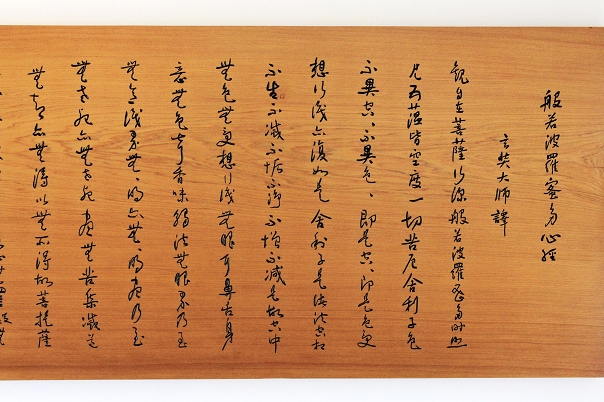 般若波羅蜜多心經
玄奘大師譯
觀自在菩薩行深般若波羅蜜多時照
見五蘊皆空度一切苦厄舍利子色
不異空、不異色、即是空、即是色受
想行識亦復如是舍利子是諸法空相
不生不滅不垢不淨不增不減是故空中
無色無受想行識無眼耳鼻舌身
意無色聲香味觸法無眼界乃至
無意識界無、明亦無、明盡乃至
無老死亦無老死盡無苦集滅道
無智亦無得以無所得故菩提薩